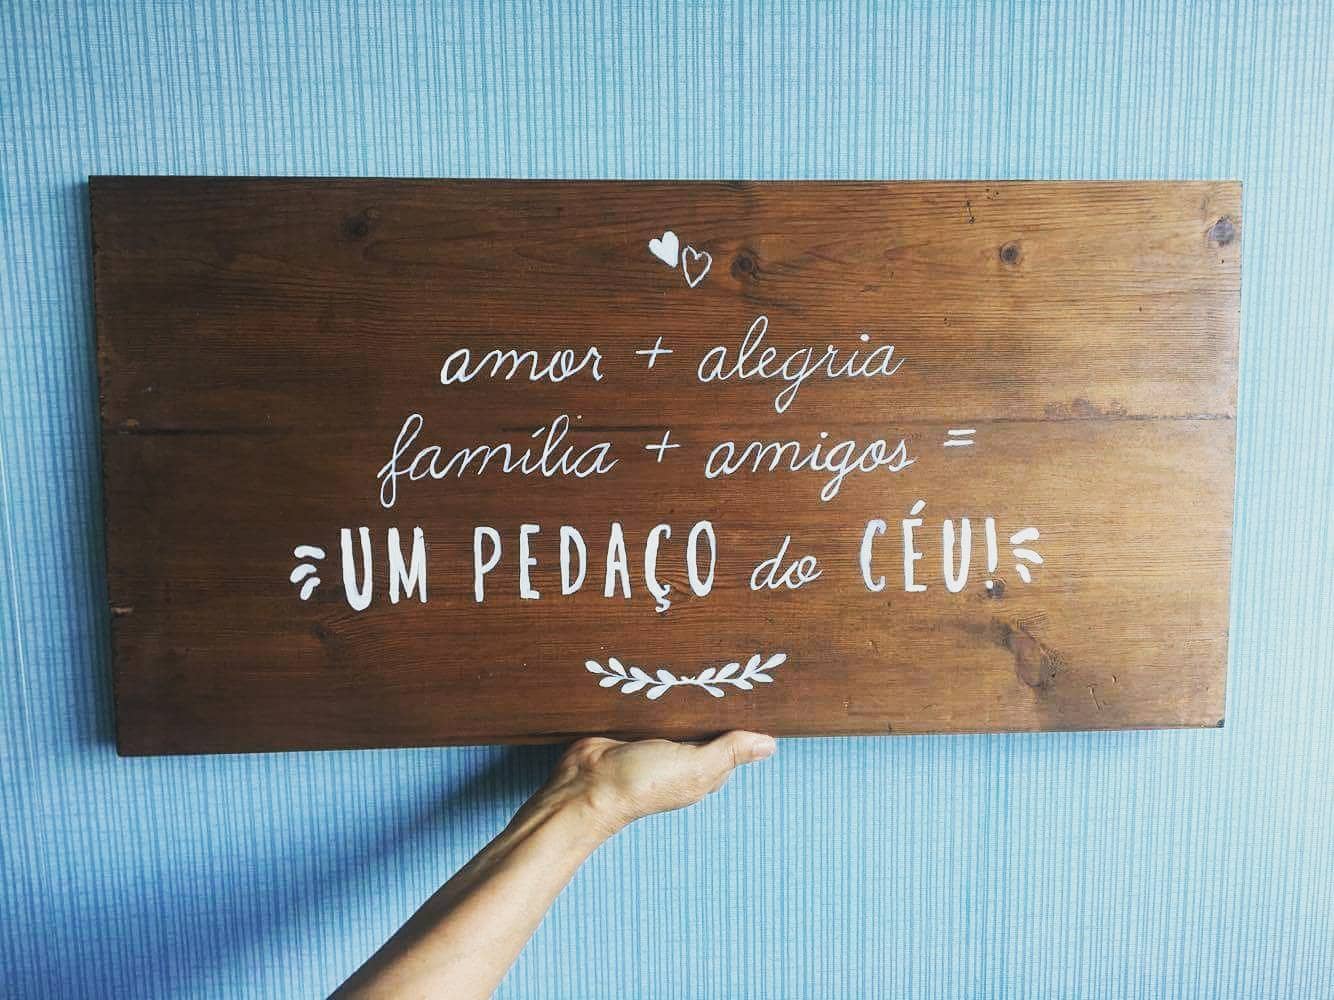 amor + alegria
família + amigos =
UM PEDAÇO do CÉU!